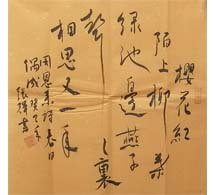 樱花红
陌上柳叶
绿池边燕子
声声里
相思又一年
周恩来诗春日
偶成癸
张辉书